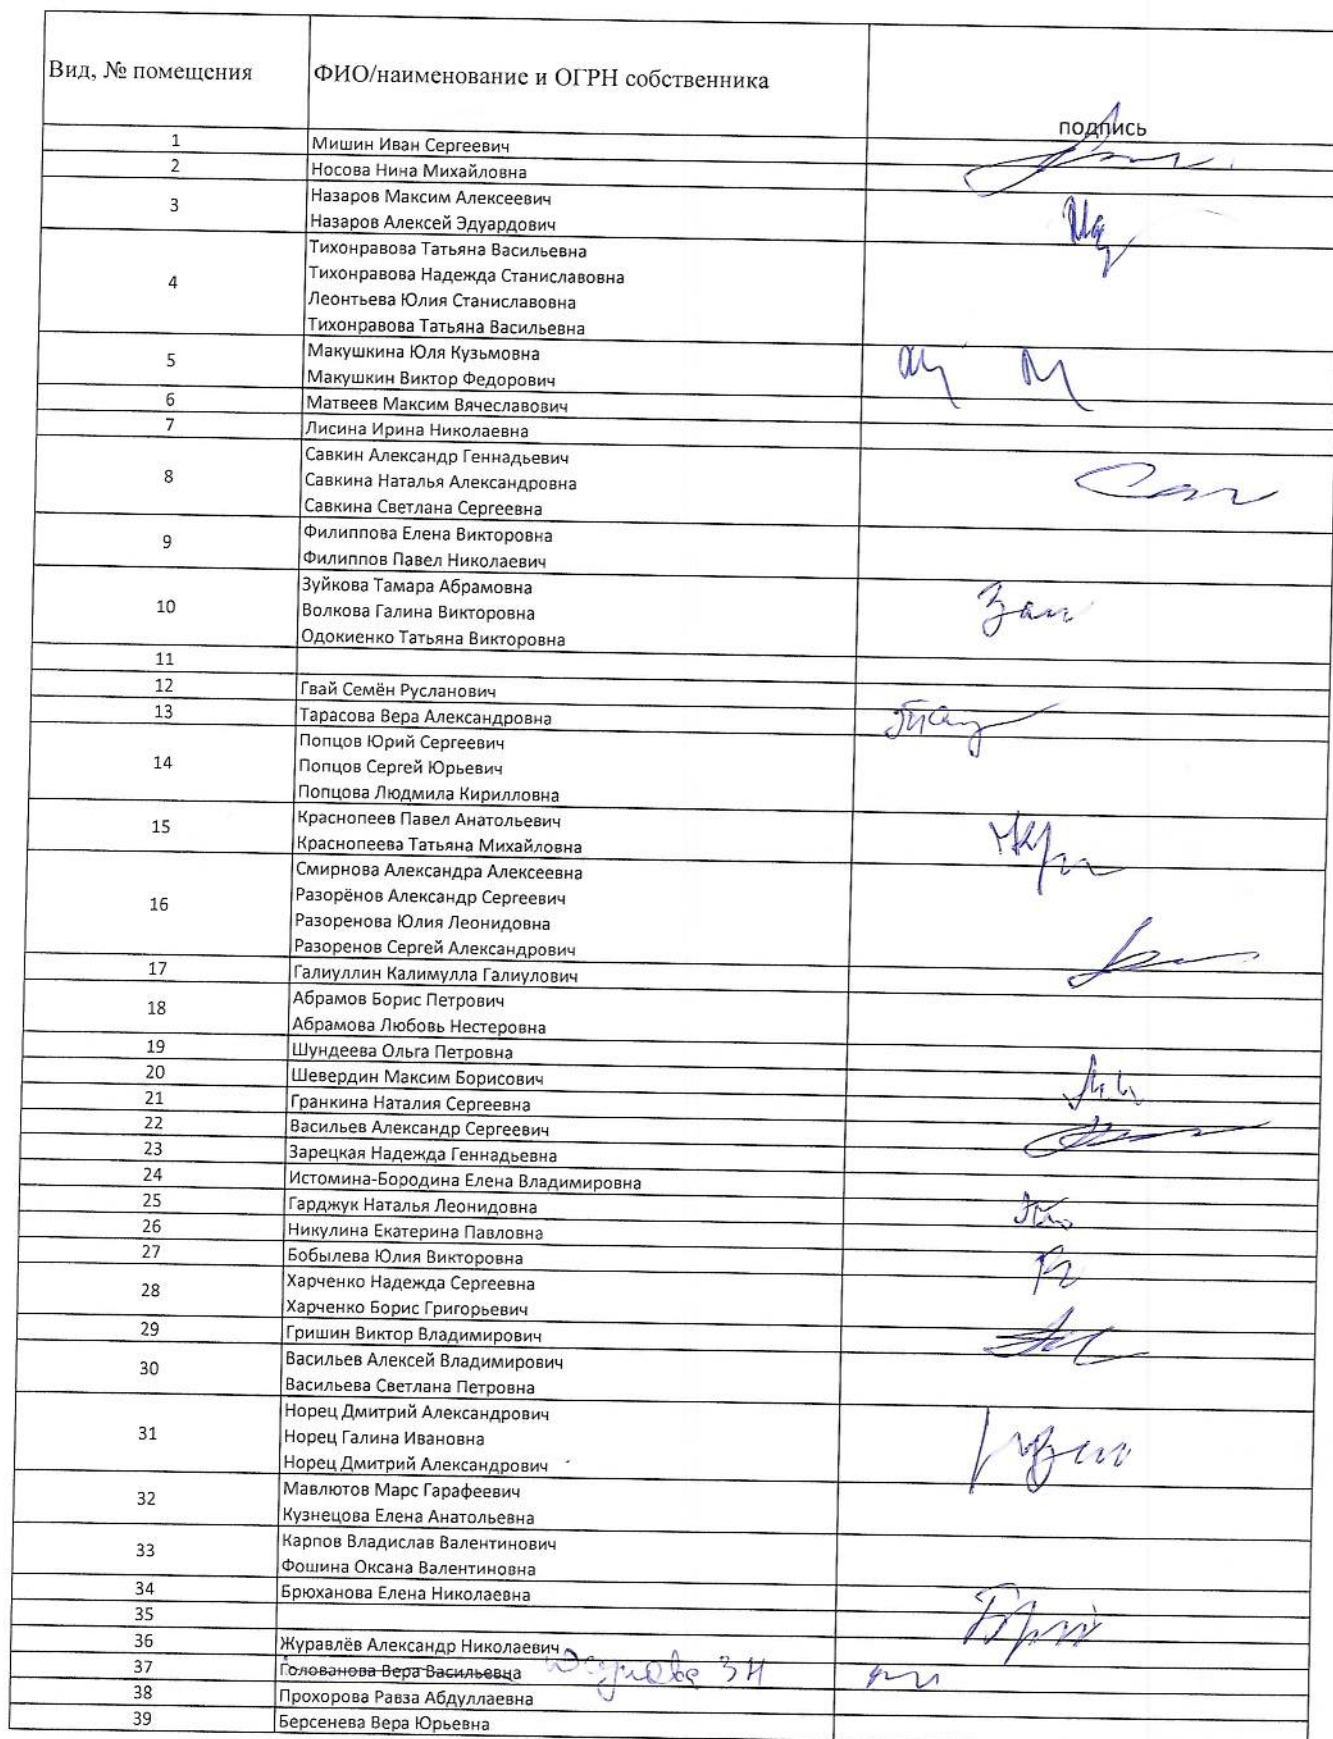 Вид, № помещения ФИО/наименование и ОГРН собственника подпись
1 Мишин Иван Сергеевич
2 Носова Нина Михайловна
3 Назаров Максим Алексеевич
Назаров Алексей Эдуардович
4 Тихонравова Татьяна Васильевна
Тихонравова Надежда Станиславовна
Леонтьева Юлия Станиславовна
Тихонравова Татьяна Васильевна
5 Макушкина Юля Кузьмовна
Макушкин Виктор Федорович
6 Матвеев Максим Вячеславович
7 Лисина Ирина Николаевна
8 Савкин Александр Геннадьевич
Савкина Наталья Александровна
Савкина Светлана Сергеевна
9 Филиппова Елена Викторовна
Филиппов Павел Николаевич
10 Зуйкова Тамара Абрамовна
Волкова Галина Викторовна
Одокиенко Татьяна Викторовна
11
12 Гвай Семён Русланович
13 Тарасова Вера Александровна
14 Попцов Юрий Сергеевич
Попцов Сергей Юрьевич
Попцова Людмила Кирилловна
15 Краснопеев Павел Анатольевич
Краснопеева Татьяна Михайловна
16 Смирнова Александра Алексеевна
Разорёнов Александр Сергеевич
Разоренова Юлия Леонидовна
Разоренов Сергей Александрович
17 Галиуллин Калимулла Галиулович
18 Абрамов Борис Петрович
Абрамова Любовь Нестеровна
19 Шундеева Ольга Петровна
20 Шевердин Максим Борисович
21 Гранкина Наталия Сергеевна
22 Васильев Александр Сергеевич
23 Зарецкая Надежда Геннадьевна
24 Истомина-Бородина Елена Владимировна
25 Гарджук Наталья Леонидовна
26 Никулина Екатерина Павловна
27 Бобылева Юлия Викторовна
28 Харченко Надежда Сергеевна
Харченко Борис Григорьевич
29 Гришин Виктор Владимирович
30 Васильев Алексей Владимирович
Васильева Светлана Петровна
31 Норец Дмитрий Александрович
Норец Галина Ивановна
Норец Дмитрий Александрович
32 Мавлютов Марс Гарафеевич
Кузнецова Елена Анатольевна
33 Карпов Владислав Валентинович
Фошина Оксана Валентиновна
34 Брюханова Елена Николаевна
35
36 Журавлёв Александр Николаевич
37 Голованова Вера Васильевна ЗН
38 Прохорова Равза Абдуллаевна
39 Берсенева Вера Юрьевна